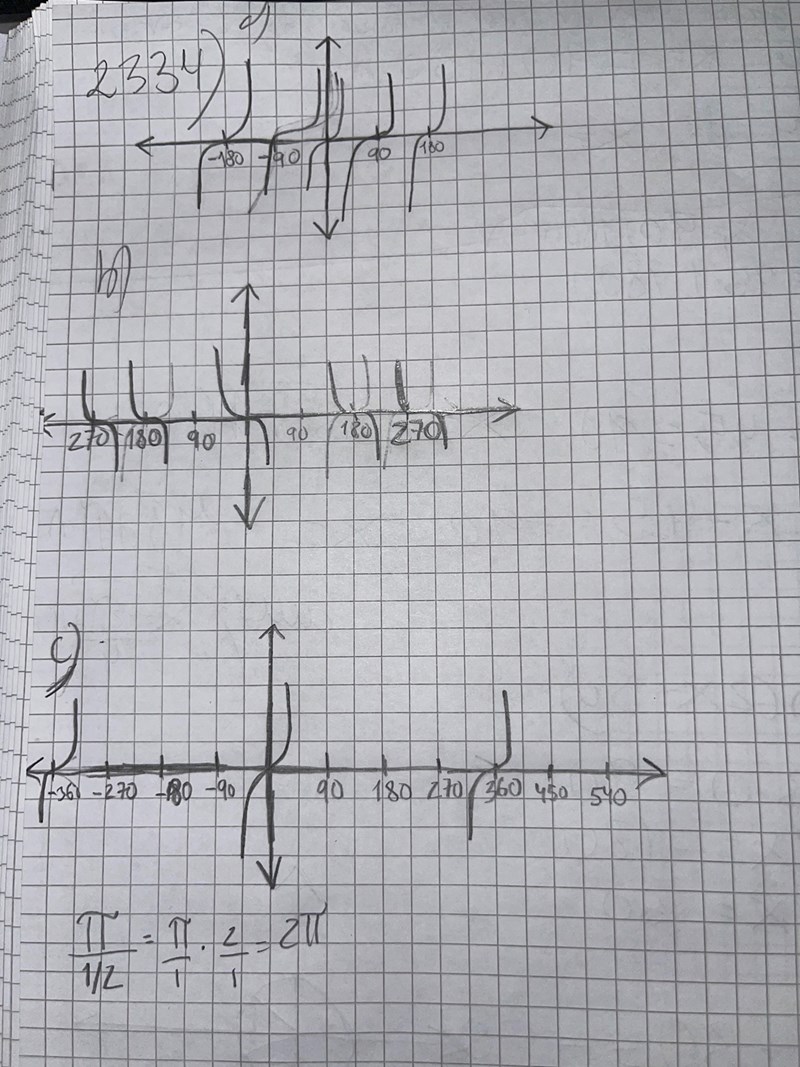 a)
2334)
-180 -90 90 180
b)
270 -180 90 90 180 270
c)
-360 -270 -180 -90 90 180 270 360 450 540
π/1/2 = π/1 · 2/1 = 2π